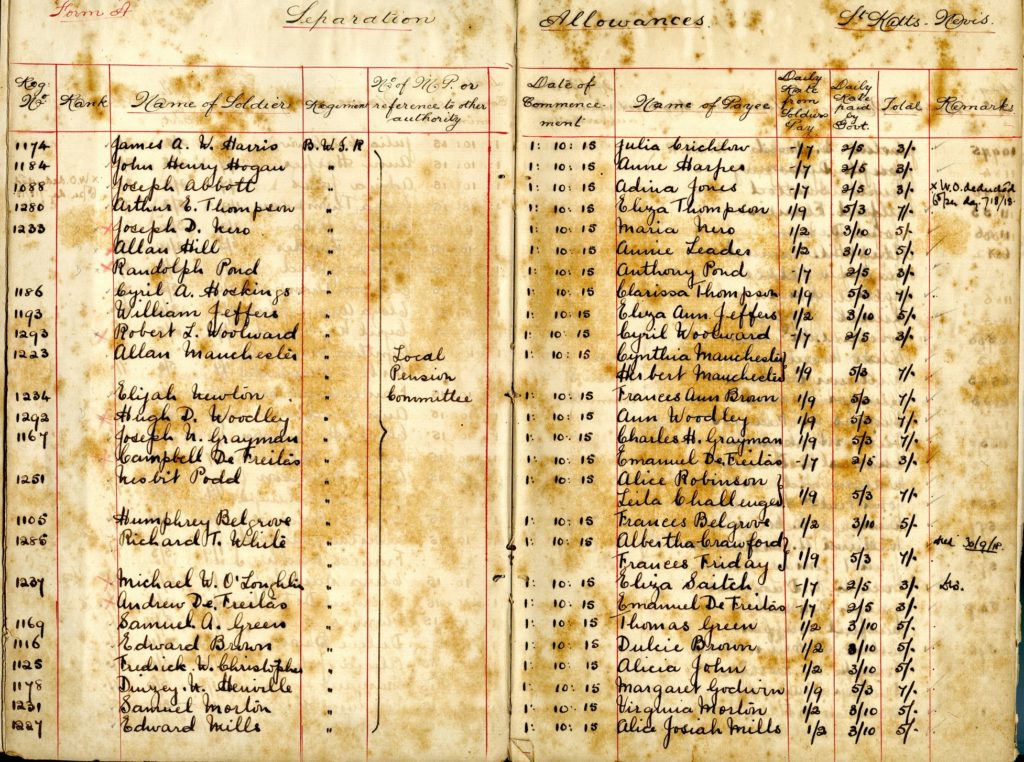 Form A Separation Allowances. St Kitts-Nevis.
Reg: No. Rank Name of Soldier Regiment No. of M.P. or reference to other authority Date of Commencement Name of Payee Daily Rate from Soldiers Pay Daily Rate paid by Govt. Total Remarks
1174 James A. W. Harris B.W.I.R 1: 10: 15 Julia Crichlow -/7 2/5 3/-
1184 John Henry Hogan " 1: 10: 15 Anne Harper -/7 2/5 3/-
1088 Joseph Abbott " 1: 10: 15 Adina Jones -/7 2/5 3/- x W.O. deducted
1280 Arthur E. Thompson " 1: 10: 15 Eliza Thompson 1/9 5/3 7/- day 7/8/18.
1233 Joseph D. Nero " 1: 10: 15 Maria Nero 1/2 3/10 5/-
Allan Hill " 1: 10: 15 Annie Leader 1/2 3/10 5/-
Randolph Pond " 1: 10: 15 Anthony Pond -/7 2/5 3/-
1186 Cyril A. Hockings " 1: 10: 15 Clarissa Thompson 1/9 5/3 7/-
1193 William Jeffers " 1: 10: 15 Eliza Ann Jeffers 1/2 3/10 5/-
1293 Robert L. Woolward " 1: 10: 15 Cyril Woolward -/7 2/5 3/-
1223 Allan Manchester " Local 1: 10: 15 Cynthia Manchester
Pension Herbert Manchester 1/9 5/3 7/-
1234 Elijah Newton " Committee 1: 10: 15 Frances Ann Brown 1/9 5/3 7/-
1292 Hugh D. Woodley " 1: 10: 15 Ann Woodley 1/9 5/3 7/-
1167 Joseph N. Grayman " 1: 10: 15 Charles H. Grayman 1/9 5/3 7/-
Campbell De Freitas " 1: 10: 15 Emanuel De Freitas -/7 2/5 3/-
1251 Nesbit Podd " 1: 10: 15 Alice Robinson
Leila Challenger 1/9 5/3 7/-
1105 Humphrey Belgrove " 1: 10: 15 Frances Belgrove 1/2 3/10 5/-
1285 Richard T. White " 1: 10: 15 Albertha Crawford 30/9/18.
Frances Friday 1/9 5/3 7/-
1237 Michael W. O'Loughlin " 1: 10: 15 Eliza Saitch -/7 2/5 3/-
Andrew De Freitas " 1: 10: 15 Emanuel De Freitas -/7 2/5 3/-
1169 Samuel A. Green " 1: 10: 15 Thomas Green 1/2 3/10 5/-
1116 Edward Brown " 1: 10: 15 Dulcie Brown 1/2 3/10 5/-
1125 Fredrick W. Christopher " 1: 10: 15 Alicia John 1/2 3/10 5/-
1178 Dinzey N. Henville " 1: 10: 15 Margaret Godwin 1/9 5/3 7/-
1231 Samuel Morton " 1: 10: 15 Virginia Morton 1/2 3/10 5/-
1227 Edward Mills " 1: 10: 15 Alice Josiah Mills 1/2 3/10 5/-